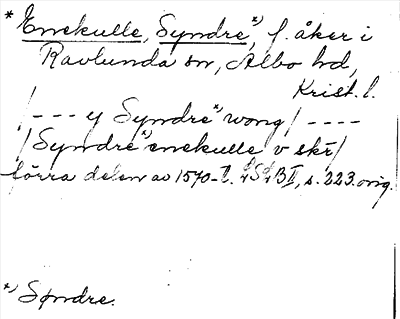 * Enekulle, Syndre*), f. åker i
Ravlunda sn, Albo hd,
Krist. l.
/--- y Syndre*) wong/ ----
/Syndre*) enekulle v skr/
förra delen av 1570-t. B II, s. 223. orig.
*) Søndre.